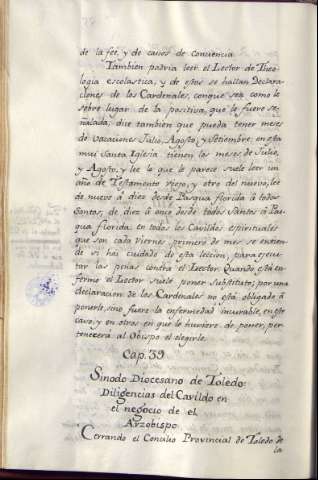 de la feé, y de casos de conciencia.
Tambien podria leer el Lector de Theo-
logia escolastica, y de estos se hallan Declara-
ciones de los Cardenales, conque sea como le
sobre lugar de la positiva, que le fuere se-
ñalada, dice tambien que pueda tener meses
de vacaciones Julio, Agosto, y Setiembre, en esta
mui Santa Iglesia tienen los meses de Julio,
y Agosto, y lee lo que le parece suele leer un
año de Testamento viejo, y otro del nuevo, lee
de nueve á diez desde Pasqua florida á todos
Santos, de diez á once desde todos Santos á Pas-
qua florida: en todos los Cavildos espirituales
que son cada viernes primero de mes se entien-
de si hai cuidado de esta leccion, para ejecu-
tar las penas contra el Lector. Quando está en-
fermo el Lector suele poner Substituto; por una
declaracion de los Cardenales no está obligado á
ponerle, sino fuere la enfermedad incurable, en este
caso, y en otros en que le huviere de poner, per-
tenecerá al Obispo el elegirle.
Cap. 39
Sinodo Diocesano de Toledo:
Diligencias del Cavildo en
el negocio de el
Arzobispo
Cerrando el Concilio Provincial de Toledo de
la